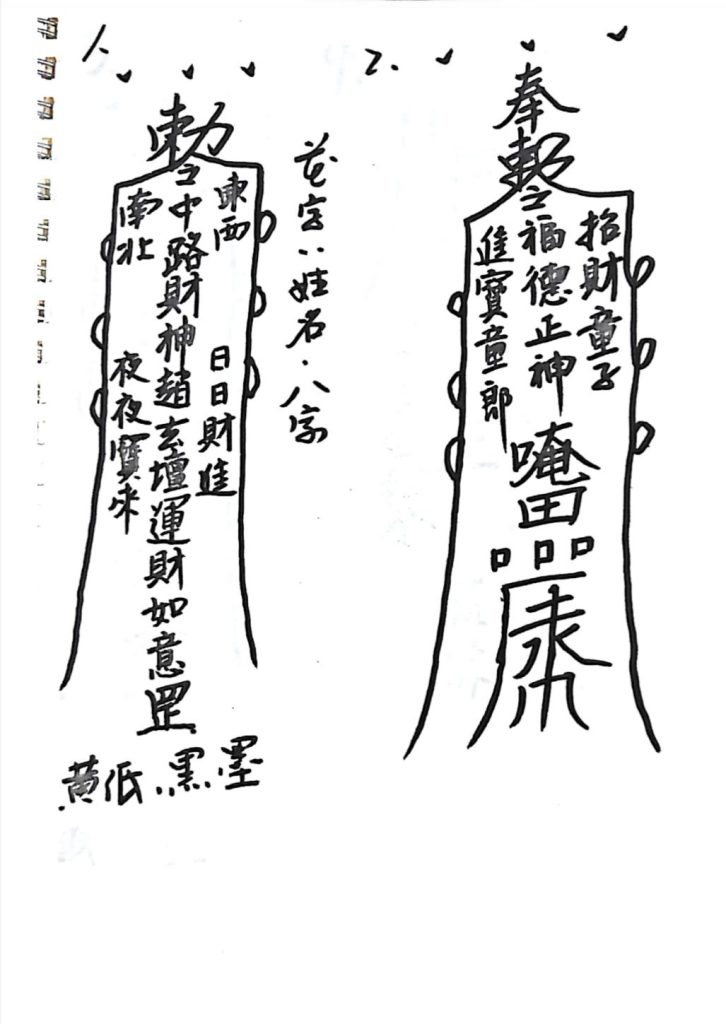 1.
勅令
東西
南北
中路財神趙玄壇運財如意罡
日日財進
夜夜寶來
花字:姓名.八字
黃低:黑墨
2.
奉
勅令
招財童子
福德正神
進寶童郎
唵
田
口口口